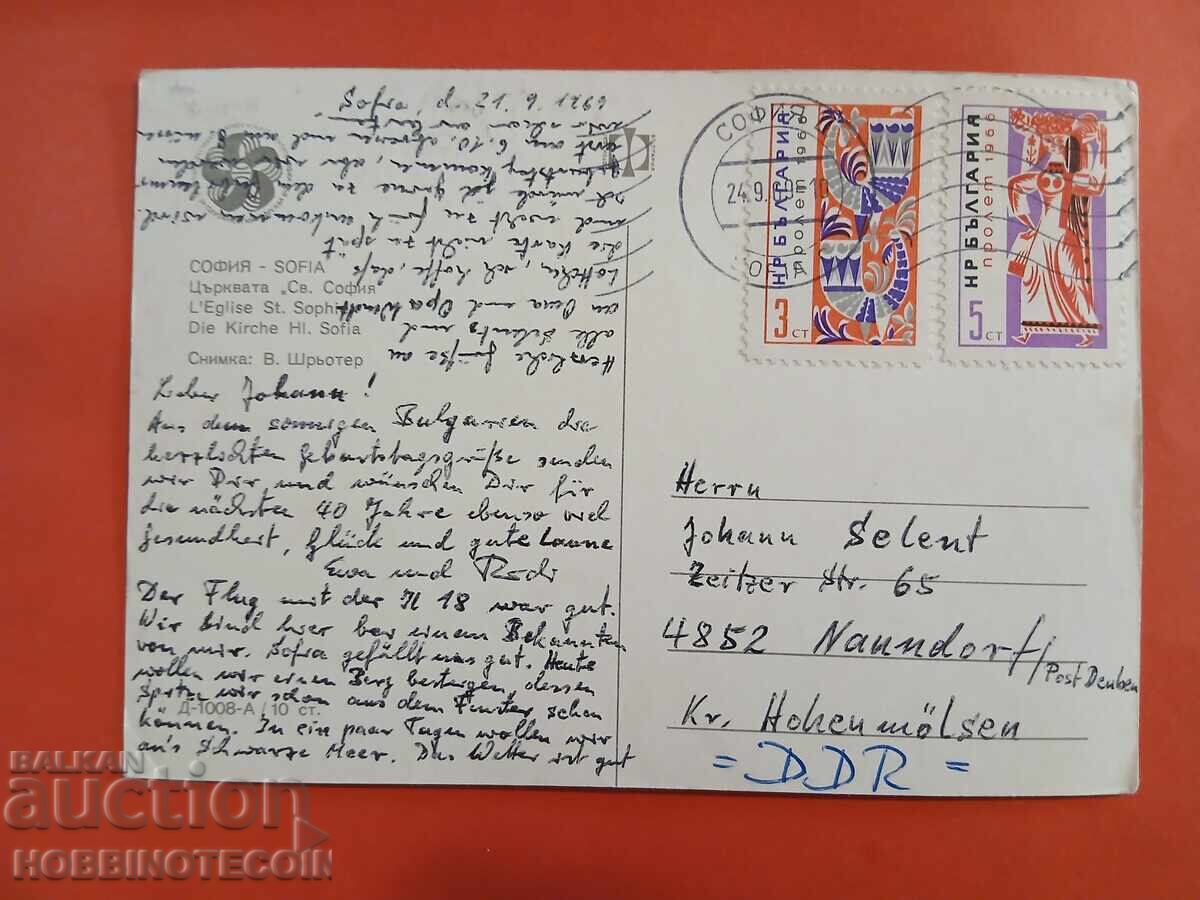 СОФИЯ - SOFIA
Църквата „Св. София
L'Eglise St. Sophie
Die Kirche Hl. Sofia
Снимка: В. Шрьотер
Lieber Johann!
Aus dem sonnigen Bulgarien die
herzlichsten Geburtstagsgrüße senden
wir Dir und wünschen Dir für
die nächsten 40 Jahre ebenso viel
Gesundheit, Glück und gute Laune
Ewa und Rudi
Der Flug mit der Il 18 war gut.
Wir sind hier bei einem Bekannten
von mir. Sofia gefällt uns gut. Heute
wollen wir einen Berg besteigen, dessen
Spitze wir schon aus dem Fenster sehen
können. In ein paar Tagen wollen wir
an's Schwarze Meer. Das Wetter ist gut
Д-1008-А / 10 ст.
Herzliche Grüße an
alle Selents und
an Oma und Opa
ich hoffe, daß
die Karte nicht zu spät
und nicht zu früh ankommen wird.
Sofia d. 21.9.
СОФИЯ
24.9.
НР БЪЛГАРИЯ
пролет 1966
3 СТ
НР БЪЛГАРИЯ
пролет 1966
5 СТ
Herrn
Johann Selent
Zeitzer Str. 65
4852 Naundorf/
Post Deuben
Kr. Hohenmölsen
= DDR =
BALKAN
auction
HOBBINOTECOIN